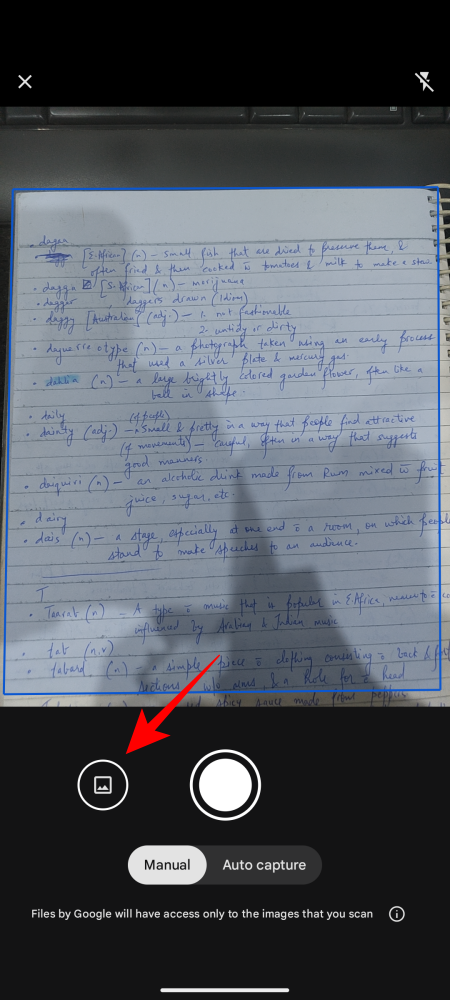 dagga
[E.African] (n) – Small fish that are dried to preserve them, &
often fried & then cooked c̄ tomatoes & milk to make a stew.
• dagga [S.African] (n) – marijuana
• dagger daggers drawn (Idiom)
• daggy [Australian] (adj.) – 1. not fashionable
2. untidy or dirty
• daguerreotype (n) – a photograph taken using an early process
that used a silver plate & mercury gas
• dahlia (n) – a large brightly colored garden flower, often like a
ball in shape.
• daily (of people)
• dainty (adj.) – Small & pretty in a way that people find attractive
(of movements) – careful, often in a way that suggests
good manners.
• daiquiri (n) – an alcoholic drink made from Rum mixed c̄ fruit
juice, sugar, etc.
• dairy
• dais (n) – a stage, especially at one end of a room, on which people
stand to make speeches to an audience.
T
• Taarab (n) – A type of music that is popular in E.Africa,
influenced by Arabian & Indian music
• tab (n.v)
• tabard (n) – a simple piece of clothing consisting of back & front
sections w/o arms, & a hole for head
spicy sauce made from peppers
Manual Auto capture
Files by Google will have access only to the images that you scan